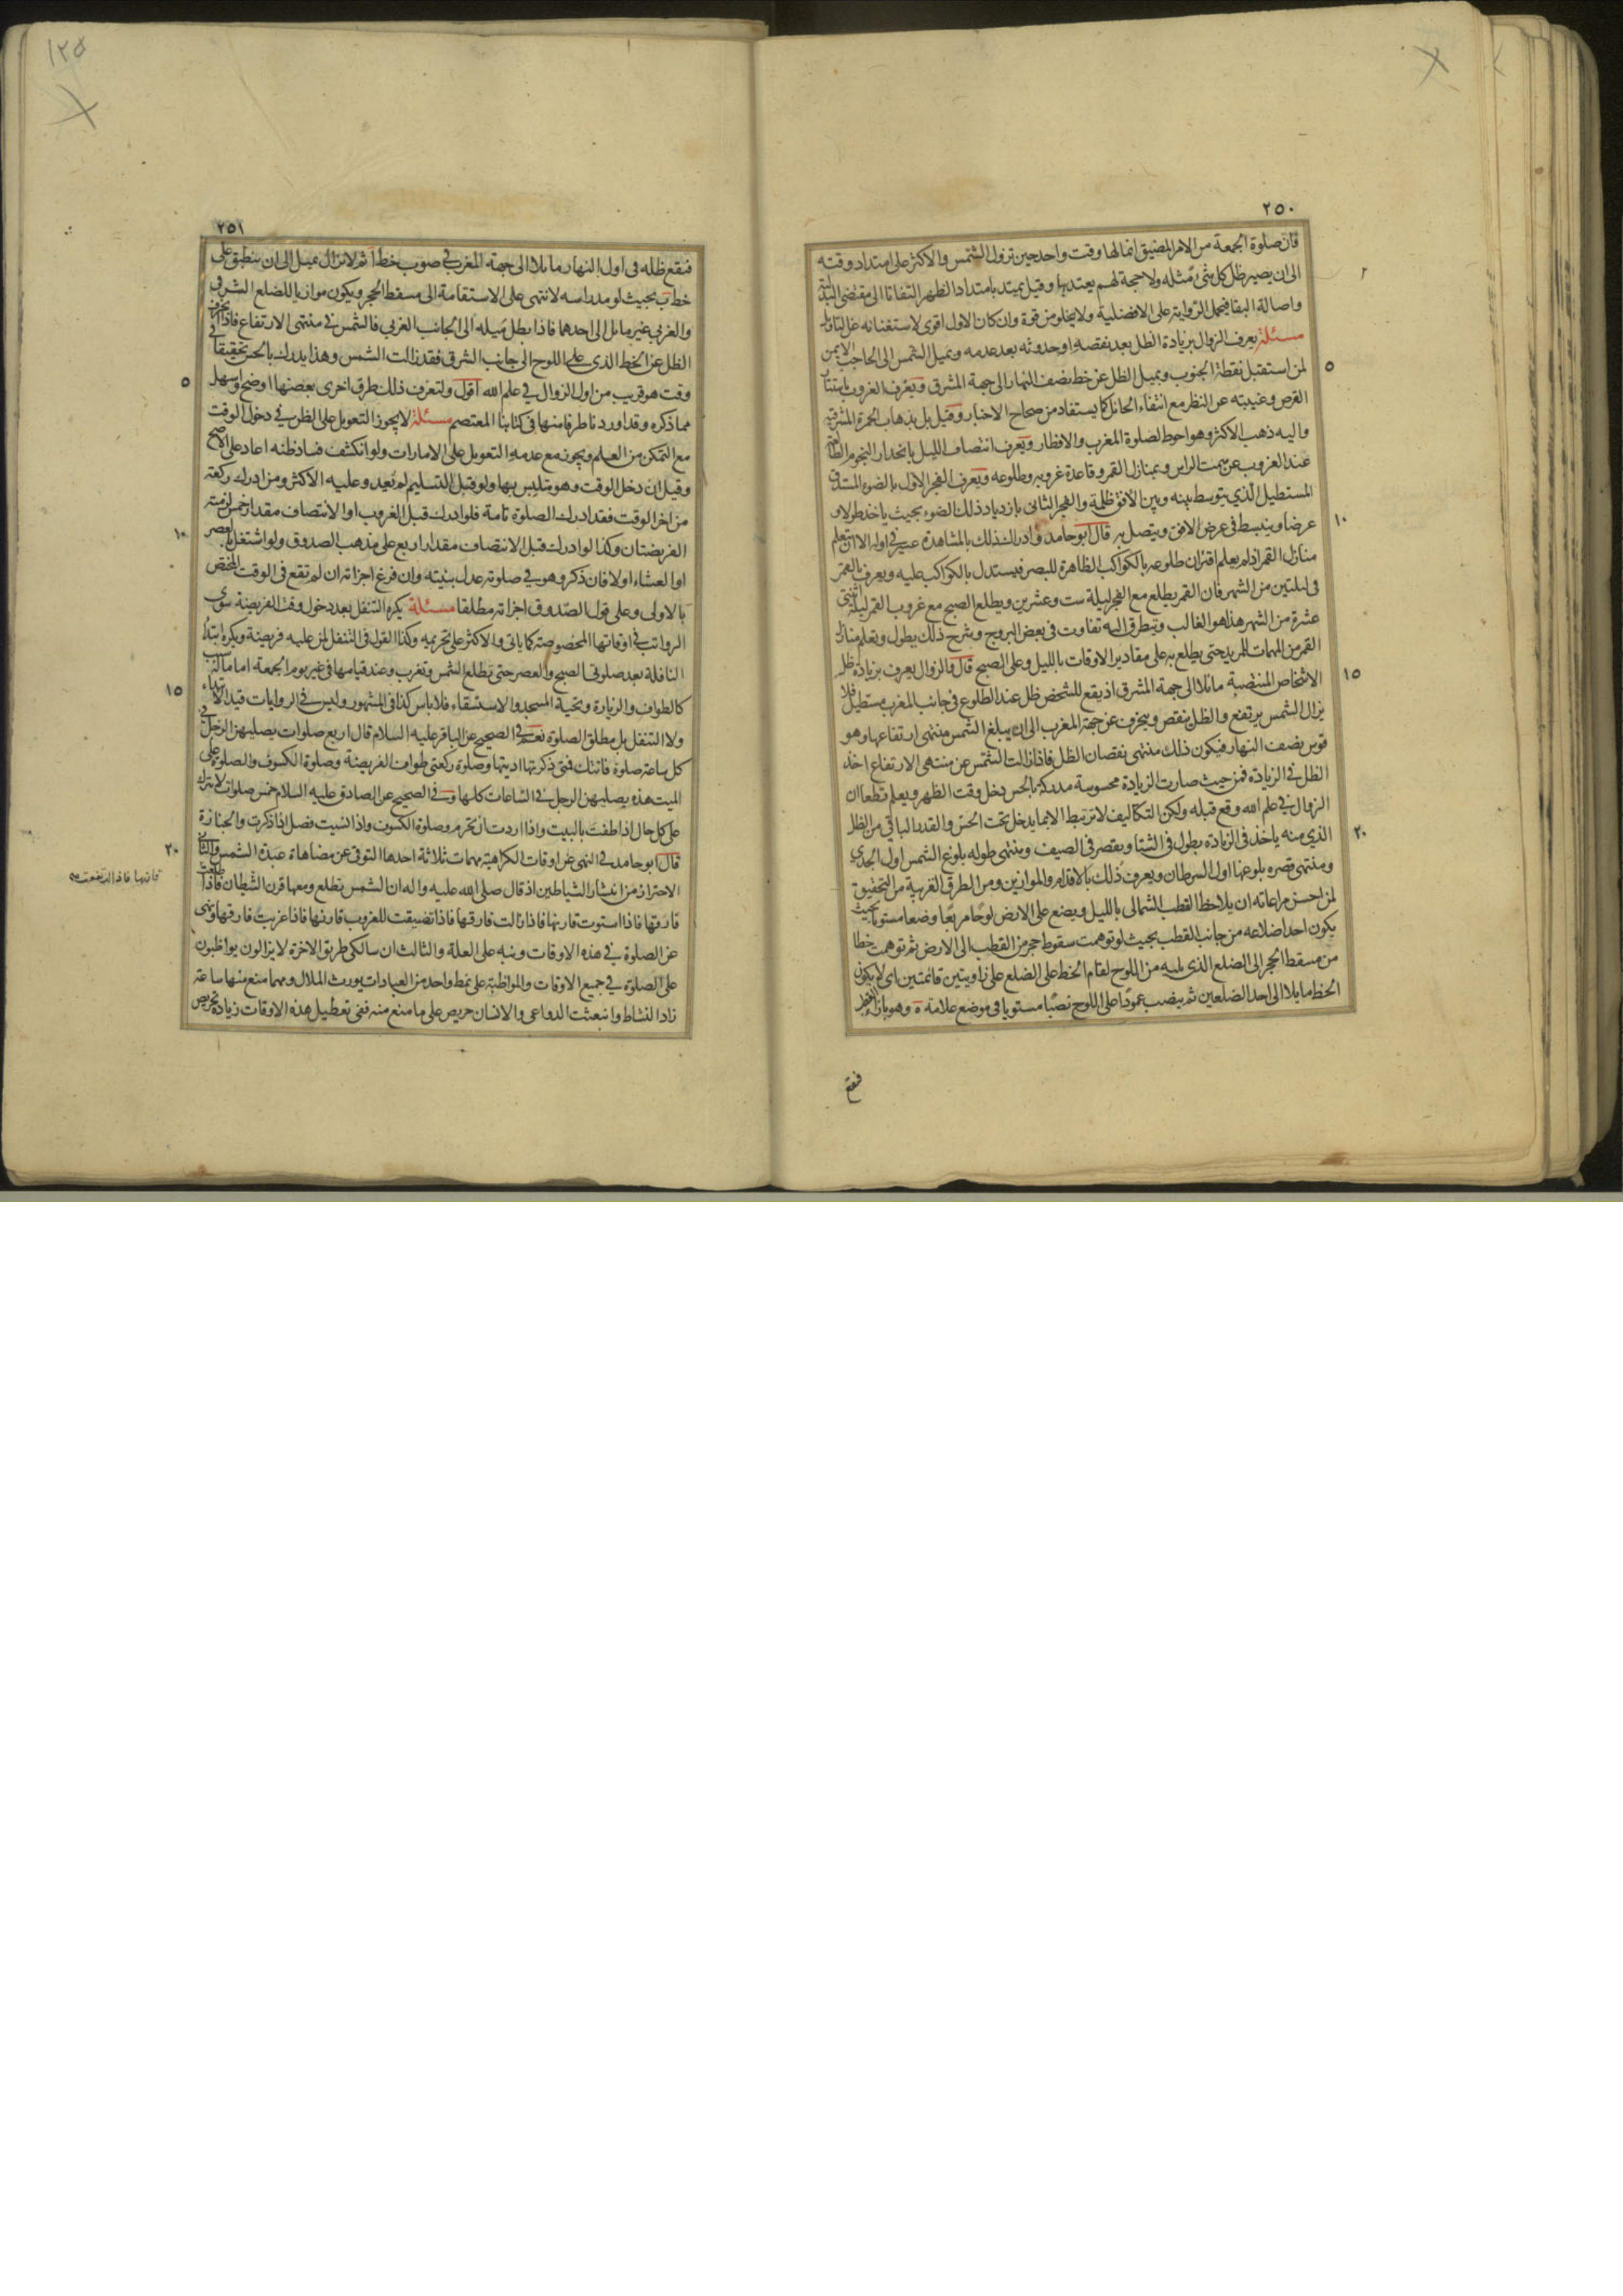 ٢٥٠
فان صلوة الجمعة من الامر المضيق انما لها وقت واحد حين تزول الشمس والاكثر على امتداد وقته
الى ان يصير ظل كل شئ مثله ولا حجة لهم يعتد بها وقيل يمتد بامتداد الظهر التفاتا الى مقتضى البدلية
واصالة البقا فيحمل الرواية على الافضلية ولا يخلو من قوة وان كان الاول اقوى لاستغنائه عن التاويل
مسئلة يعرف الزوال بزيادة الظل بعد نقصه او حدوثه بعد عدمه وبميل الشمس الى الحاجب الايمن
لمن استقبل نقطة الجنوب وبميل الظل عن خط نصف النهار الى جهة المشرق ويعرف الغروب باستتار
القرص وغيبته عن النظر مع انتفاء الحائل كما يستفاد من صحاح الاخبار وقيل بل بذهاب الحمرة المشرقية
واليه ذهب الاكثر وهو احوط لصلوة المغرب والافطار ويعرف انتصاف الليل بانحدار النجوم الطالعة
عند الغروب عن سمت الراس وبمنازل القمر وقاعدة غروبه وطلوعه ويعرف الفجر الاول بالضوء المستدق
المستطيل الذي يتوسط بينه وبين الافق ظلمة والفجر الثاني بازدياد ذلك الضوء بحيث ياخذ طولا و
عرضا وينبسط في عرض الافق ويتصل به قال ابو حامد وادراك ذلك بالمشاهدة عسير في اوله الا ان يتعلم
منازل القمر اذ لم يعلم اقتران طلوعه بالكواكب الظاهرة للبصر فيستدل بالكواكب عليه ويعرف بالقمر
في ليلتين من الشهر فان القمر يطلع مع الفجر ليلة ست وعشرين ويطلع الصبح مع غروب القمر ليلة اثنتي
عشرة من الشهر هذا هو الغالب ويتطرق اليه تفاوت في بعض البروج وشرح ذلك يطول وتعلم منازل
القمر من المهمات للمريد حتى يطلع به على مقادير الاوقات بالليل وعلى الصبح قال والزوال يعرف بزيادة ظل
الاشخاص المنتصبة مائلا الى جهة المشرق اذ يقع للشخص ظل عند الطلوع في جانب المغرب مستطيل فلا
يزال الشمس يرتفع والظل ينقص وينحرف عن جهة المغرب الى ان يبلغ الشمس منتهى ارتفاعها وهو
قوس نصف النهار فيكون ذلك منتهى نقصان الظل فاذا زالت الشمس عن منتهى الارتفاع اخذ
الظل في الزيادة فمن حيث صارت الزيادة محسوسة مدركة بالحس دخل وقت الظهر ويعلم قطعا ان
الزوال في علم الله وقع قبله ولكن التكاليف لا ترتبط الا بما يدخل تحت الحس والقدر الباقي من الظل
الذي منه ياخذ في الزيادة يطول في الشتا ويقصر في الصيف ومنتهى طوله بلوغ الشمس اول الجدي
ومنتهى قصره بلوغها اول السرطان ويعرف ذلك بالاقدام والموازين ومن الطرق القريبة من التحقيق
لمن احسن مراعاته ان يلاحظ القطب الشمالي بالليل ويضع على الارض لوحا مربعا وضعا مستويا بحيث
يكون احد اضلاعه من جانب القطب بحيث لو توهمت سقوط حجر من القطب الى الارض ثم توهمت خطا
من مسقط الحجر الى الضلع الذي يليه من اللوح لقام الخط على الضلع على زاويتين قائمتين اي لا يكون
الخط مايلا الى احد الضلعين ثم ينصب عمودا على اللوح نصبا مستويا في موضع علامة ه وهو بازاء القطب
فيقع
٢
٥
١٠
١٥
٢٠
١٢٥
٢٥١
فيقع ظله في اول النهار مايلا الى جهة المغرب في صوب خط آ ثم لا يزال يميل الى ان ينطبق على
خط ب بحيث لو مد راسه لانتهى على الاستقامة الى مسقط الحجر ويكون موازيا للضلع الشرقي
والغربي غير مايل الى احدهما فاذا بطل ميله الى الجانب الغربي فالشمس في منتهى الارتفاع فاذا انحرف
الظل عن الخط الذي على اللوح الى جانب الشرق فقد زالت الشمس وهذا يدرك بالحس تحقيقا في
وقت هو قريب من اول الزوال في علم الله اقول ولتعرف ذلك طرق اخرى بعضها اوضح واسهل
مما ذكره وقد اوردنا طرفا منها في كتابنا المعتصم مسئلة لا يجوز التعويل على الظن في دخول الوقت
مع التمكن من العلم ويجوز مع عدمه التعويل على الامارات ولو انكشف فساد ظنه اعاد على الاصح
وقيل ان دخل الوقت وهو متلبس بها ولو قبل التسليم لم تعد وعليه الاكثر ومن ادرك ركعة
من اخر الوقت فقد ادرك الصلوة تامة فلو ادرك قبل الغروب او الانتصاف مقدار خمس لزمته
الفريضتان وكذا لو ادرك قبل الانتصاف مقدار اربع على مذهب الصدوق ولو اشتغل بالعصر
او العشاء اولا فان ذكر وهو في صلوته عدل بنيته وان فرغ اجزاته ان لم تقع في الوقت المختص
بالاولى وعلى قول الصدوق اجزاته مطلقا مسئلة يكره التنفل بعد دخول وقت الفريضة سوى
الرواتب في اوقاتها المخصوصة كما ياتي والاكثر على تحريمه وكذا القول في التنفل لمن عليه فريضة ويكره ابتداء
النافلة بعد صلوتي الصبح والعصر حتى تطلع الشمس وتغرب وعند قيامها في غير يوم الجمعة اما ما له سبب
كالطواف والزيارة وتحية المسجد والاستسقاء فلا باس كذا في المشهور وليس في الروايات قيد الابتداء
ولا التنفل بل مطلق الصلوة نعم في الصحيح عن الباقر عليه السلام قال اربع صلوات يصليهن الرجل في
كل ساعة صلوة فاتتك فمتى ذكرتها اديتها وصلوة ركعتي طواف الفريضة وصلوة الكسوف والصلوة على
الميت هذه يصليهن الرجل في الساعات كلها وفي الصحيح عن الصادق عليه السلام خمس صلوات لا تترك
على كل حال اذا طفت بالبيت واذا اردت ان تحرم وصلوة الكسوف واذا نسيت فصل اذا ذكرت والجنازة
قال ابو حامد في النهي عن اوقات الكراهية مهمات ثلاثة احدها التوقي عن مضاهاة عبدة الشمس والثاني
الاحتراز من انتشار الشياطين اذ قال صلى الله عليه واله ان الشمس تطلع ومعها قرن الشيطان فاذا طلعت
قارنها فاذا ارتفعت صح
فارقها فاذا استوت قارنها فاذا زالت فارقها فاذا تضيقت للغروب قارنها فاذا غربت فارقها ونهى
عن الصلوة في هذه الاوقات ونبه على العلة والثالث ان سالكي طريق الاخرة لا يزالون يواظبون
على الصلوة في جميع الاوقات والمواظبة على نمط واحد من العبادات يورث الملال ومهما منع منها ساعة
زاد النشاط وانبعثت الدواعي والانسان حريص على ما منع منه ففي تعطيل هذه الاوقات زيادة تحريص
٥
١٠
١٥
٢٠